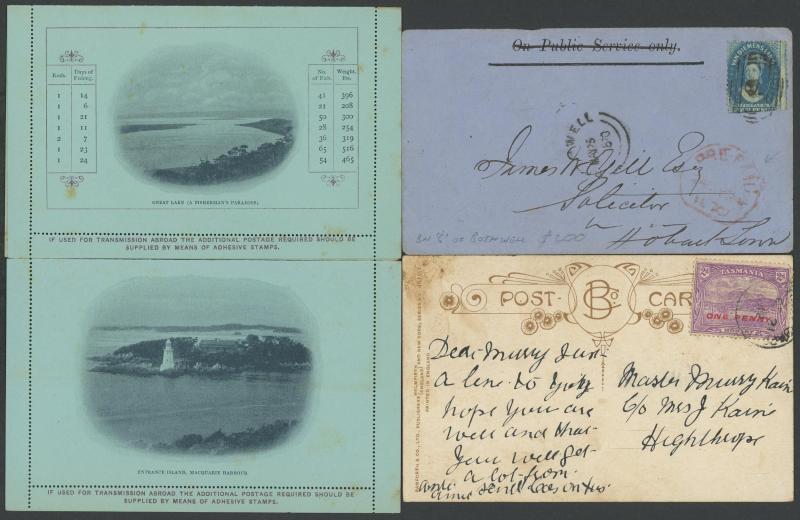 Rods.
Days of Fishing.
1 14
1 6
1 21
1 11
2 7
1 23
1 24
No. of Fish.
Weight. lbs.
41 396
21 208
50 300
28 254
36 319
65 516
54 465
GREAT LAKE (A FISHERMAN'S PARADISE).
IF USED FOR TRANSMISSION ABROAD THE ADDITIONAL POSTAGE REQUIRED SHOULD BE
SUPPLIED BY MEANS OF ADHESIVE STAMPS.
On Public Service only.
VAN DIEMENS LAND
WELL
James W. Hill Esq
Solicitor
Hobart Town
BN "6" OF BOTHWELL $200
ENTRANCE ISLAND, MACQUARIE HARBOUR.
IF USED FOR TRANSMISSION ABROAD THE ADDITIONAL POSTAGE REQUIRED SHOULD BE
SUPPLIED BY MEANS OF ADHESIVE STAMPS.
POST B Co CARD
TASMANIA
ONE PENNY
BAMFORTH & CO., LTD., PUBLISHERS, HOLMFIRTH (ENGLAND) AND NEW YORK.
PRINTED IN ENGLAND
Dear Murry Just
a line to
hope you are
well and that
you will get
a lot from
Master Murry Kain
c/o Mrs J Kain
Highthorpe